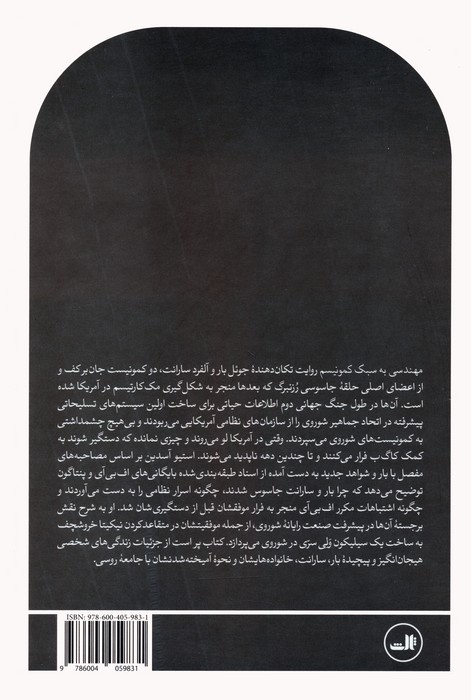 مهندسی به سبک کمونیسم روایت تکان‌دهندهٔ جوئل بار و آلفرد سارانت، دو کمونیست جان‌برکف و
از اعضای اصلی حلقهٔ جاسوسی رُزنبرگ که بعدها منجر به شکل‌گیری مک‌کارتیسم در آمریکا شده
است. آن‌ها در طول جنگ جهانی دوم اطلاعات حیاتی برای ساخت اولین سیستم‌های تسلیحاتی
پیشرفته در اتحاد جماهیر شوروی را از سازمان‌های نظامی آمریکایی می‌ربودند و بی‌هیچ چشمداشتی
به کمونیست‌های شوروی می‌سپردند. وقتی در آمریکا لو می‌روند و چیزی نمانده که دستگیر شوند به
کمک کاگ‌ب فرار می‌کنند و تا چندین دهه ناپدید می‌شوند. استیو آسدین بر اساس مصاحبه‌های
مفصل با بار و شواهد جدید به دست آمده از اسناد طبقه‌بندی شده بایگانی‌های اف‌بی‌آی و پنتاگون
توضیح می‌دهد که چرا بار و سارانت جاسوس شدند، چگونه اسرار نظامی را به دست می‌آوردند و
چگونه اشتباهات مکرر اف‌بی‌آی منجر به فرار موفقشان قبل از دستگیری شان شد. او به شرح نقش
برجستهٔ آن‌ها در پیشرفت صنعت رایانهٔ شوروی، از جمله موفقیتشان در متقاعدکردن نیکیتا خروشچف
به ساخت یک سیلیکون وَلی سرّی در شوروی می‌پردازد. کتاب پر است از جزئیات زندگی‌های شخصی
هیجان‌انگیز و پیچیدهٔ بار، سارانت، خانواده‌هایشان و نحوهٔ آمیخته‌شدنشان با جامعهٔ روسی.
ISBN: 978-600-405-983-1
9 786004 059831
ثالث